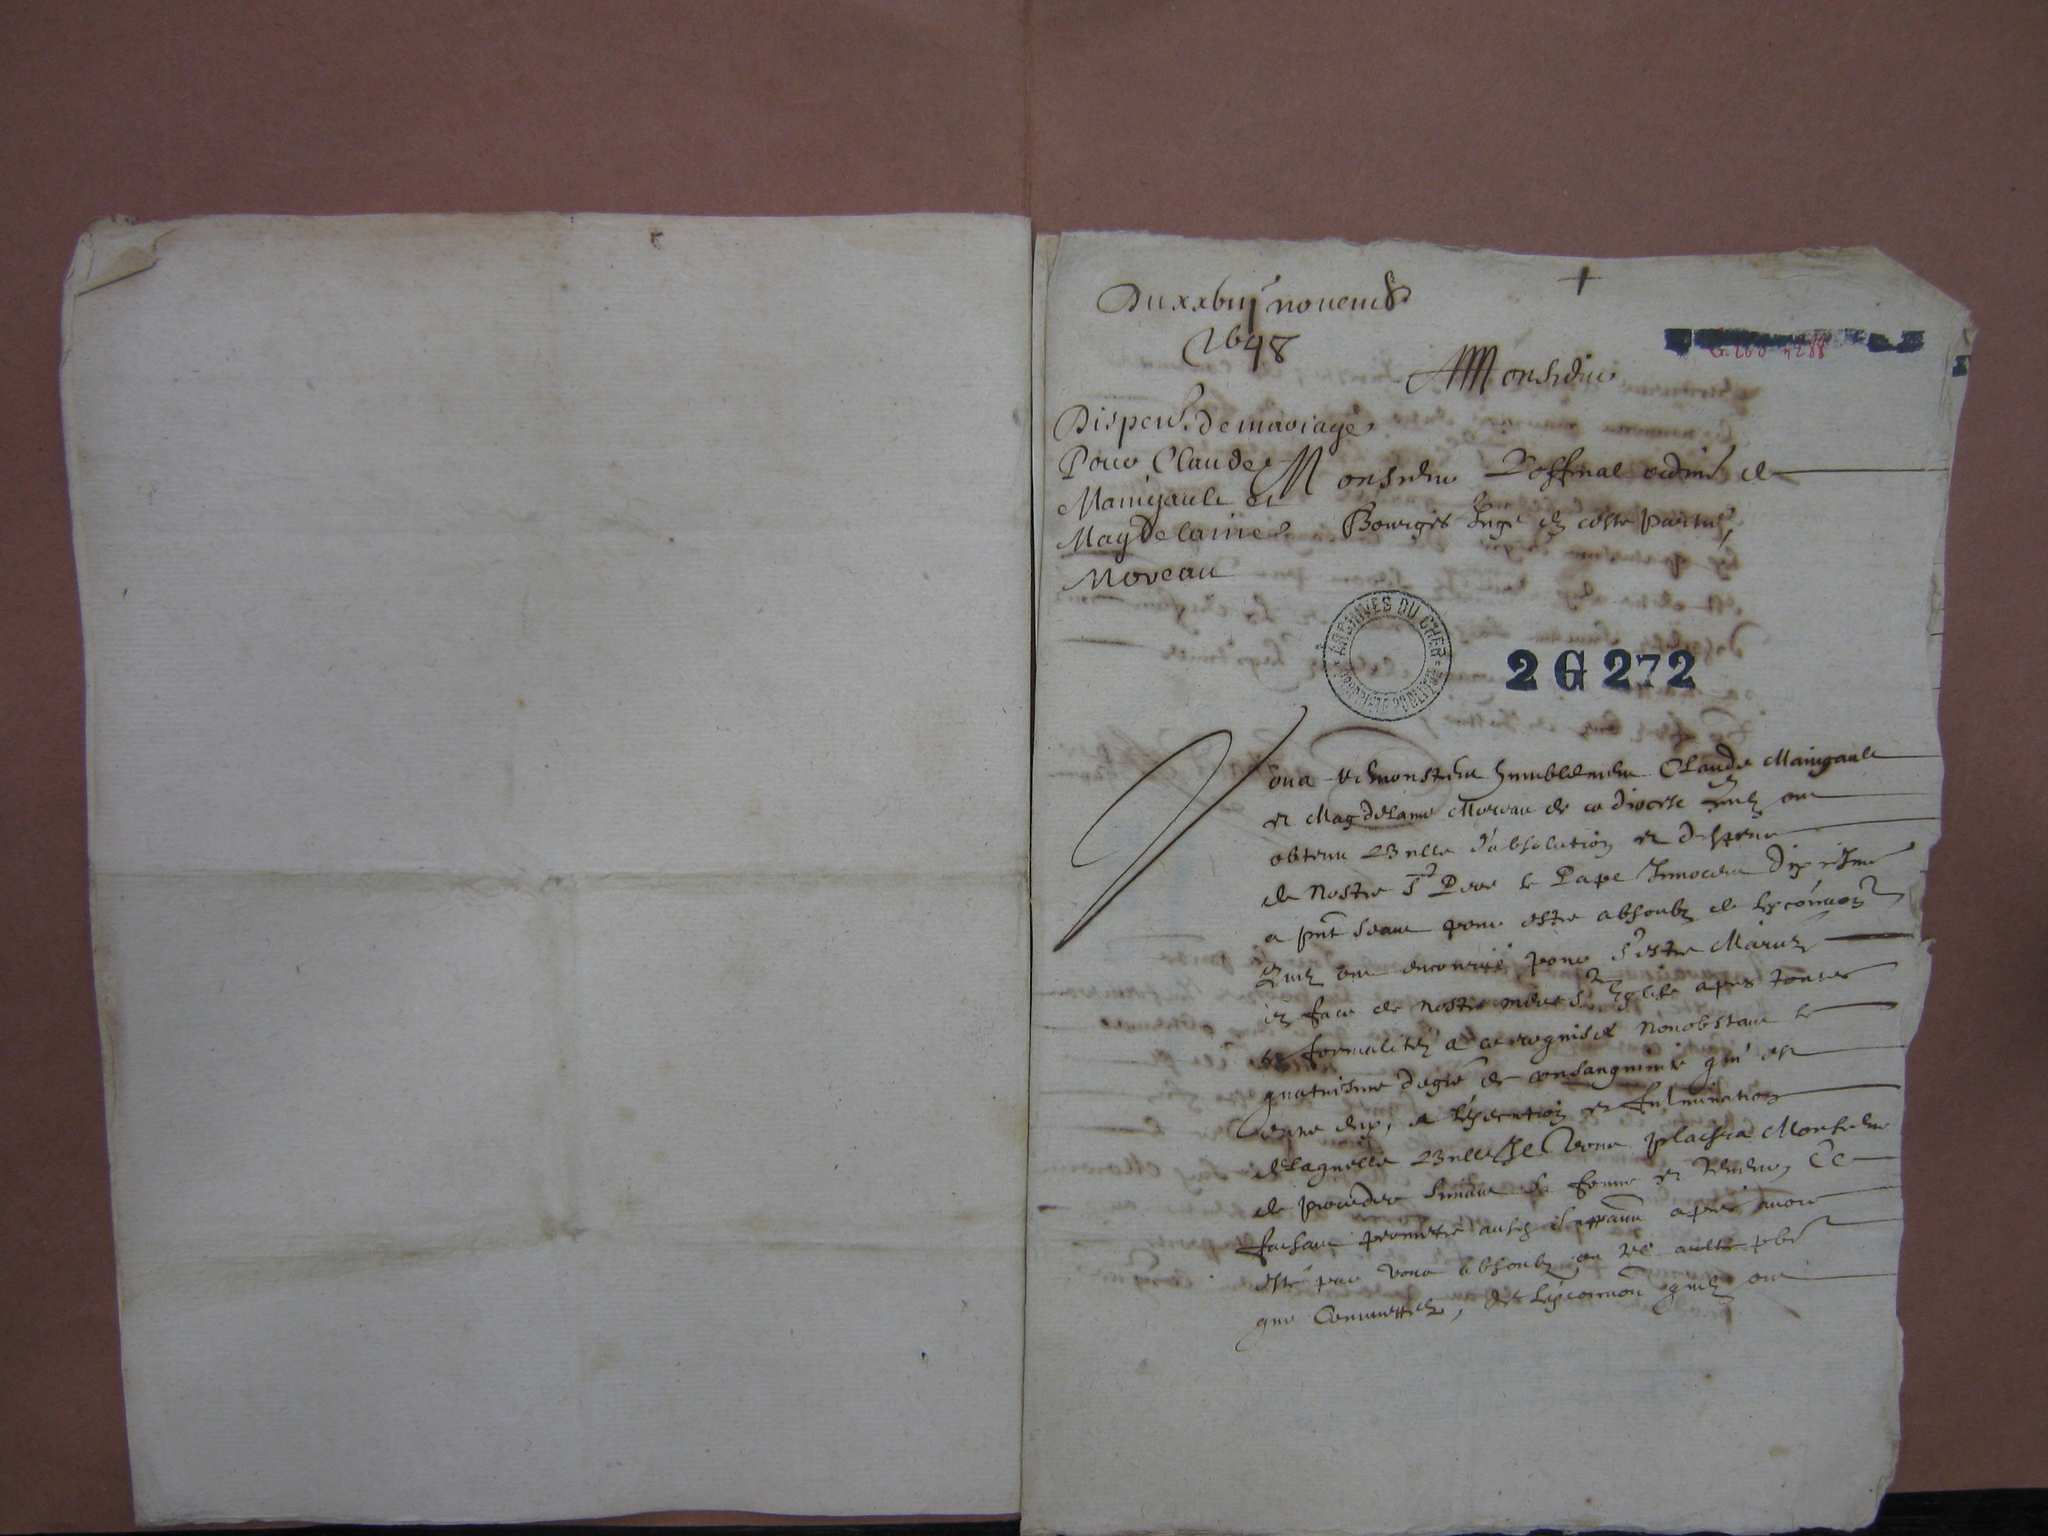 Du xxbiij novemb
1648
+
G. 260 n 288
A Monsieur
Dispens. de mariage
Pour Claude
Manigault et
Magdelaine
Moreau
Monsieur L'offinal ordine de
Bourges Juge en ceste partie,
ARCHIVES DU CHER
2 G 272
Vous remonstrent humblement Claude Manigault
et Magdelaine Moreau de ce diocese quilz ont
obtenu Bulle d'absolution et dispense
de Nostre St Pere le Pape Innocent dixiesme
a pnt seant pour estre absoubz de lexcoïcaon
Quilz ont encourue pour s'estre Mariez
en face de nostre mere Ste Eglise apres toutes
les formalitez a ce requises Nonobstant le
quatriesme degre de consanguinite qui est
entre eux, a l'execution et fulmination
de laquelle Bulle Il vous plaira Monsieur
de proceder suivant sa forme et teneur, Ce
faisant permettre ausd. suppans apres avoir
esté par vous absoubz ou tel aultre pbre
que commettrez, de lexcoïcaon quilz ont